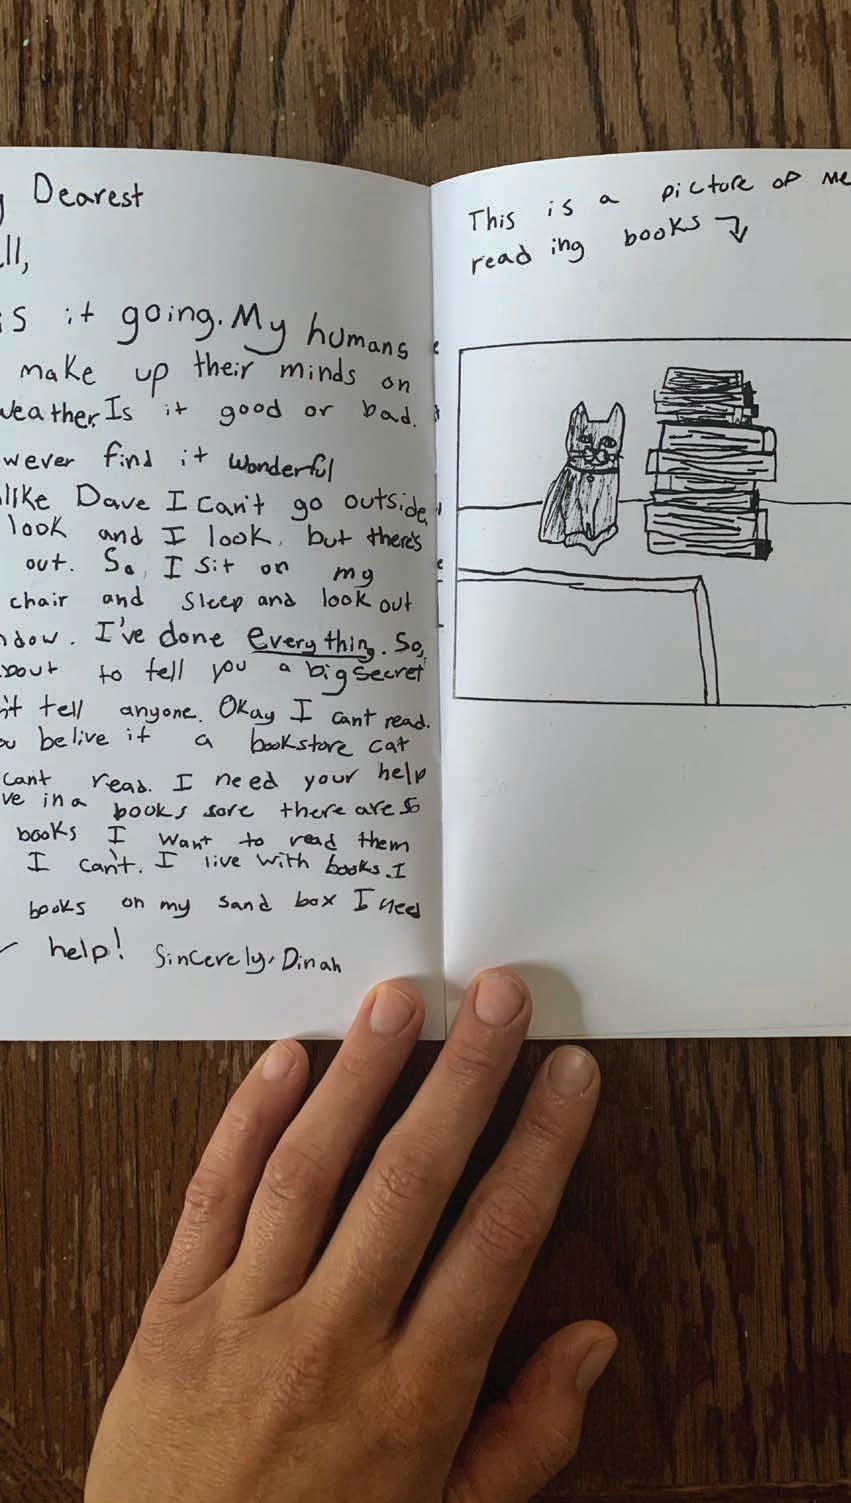 Dearest
ll,
is it going. My humans
make up their minds on
weather. Is it good or bad.
wever find it wonderful
like Dave I can't go outside,
look and I look, but there's
out. So, I sit on my
chair and sleep and look out
ndow. I've done everything. So,
bout to tell you a big secret
n't tell anyone. Okay I cant read.
ou belive it a bookstore cat
cant read. I need your help
ve in a books sore there are so
books I want to read them
I can't. I live with books. I
books on my sand box I need
help! Sincerely, Dinah
This is a picture of me
reading books